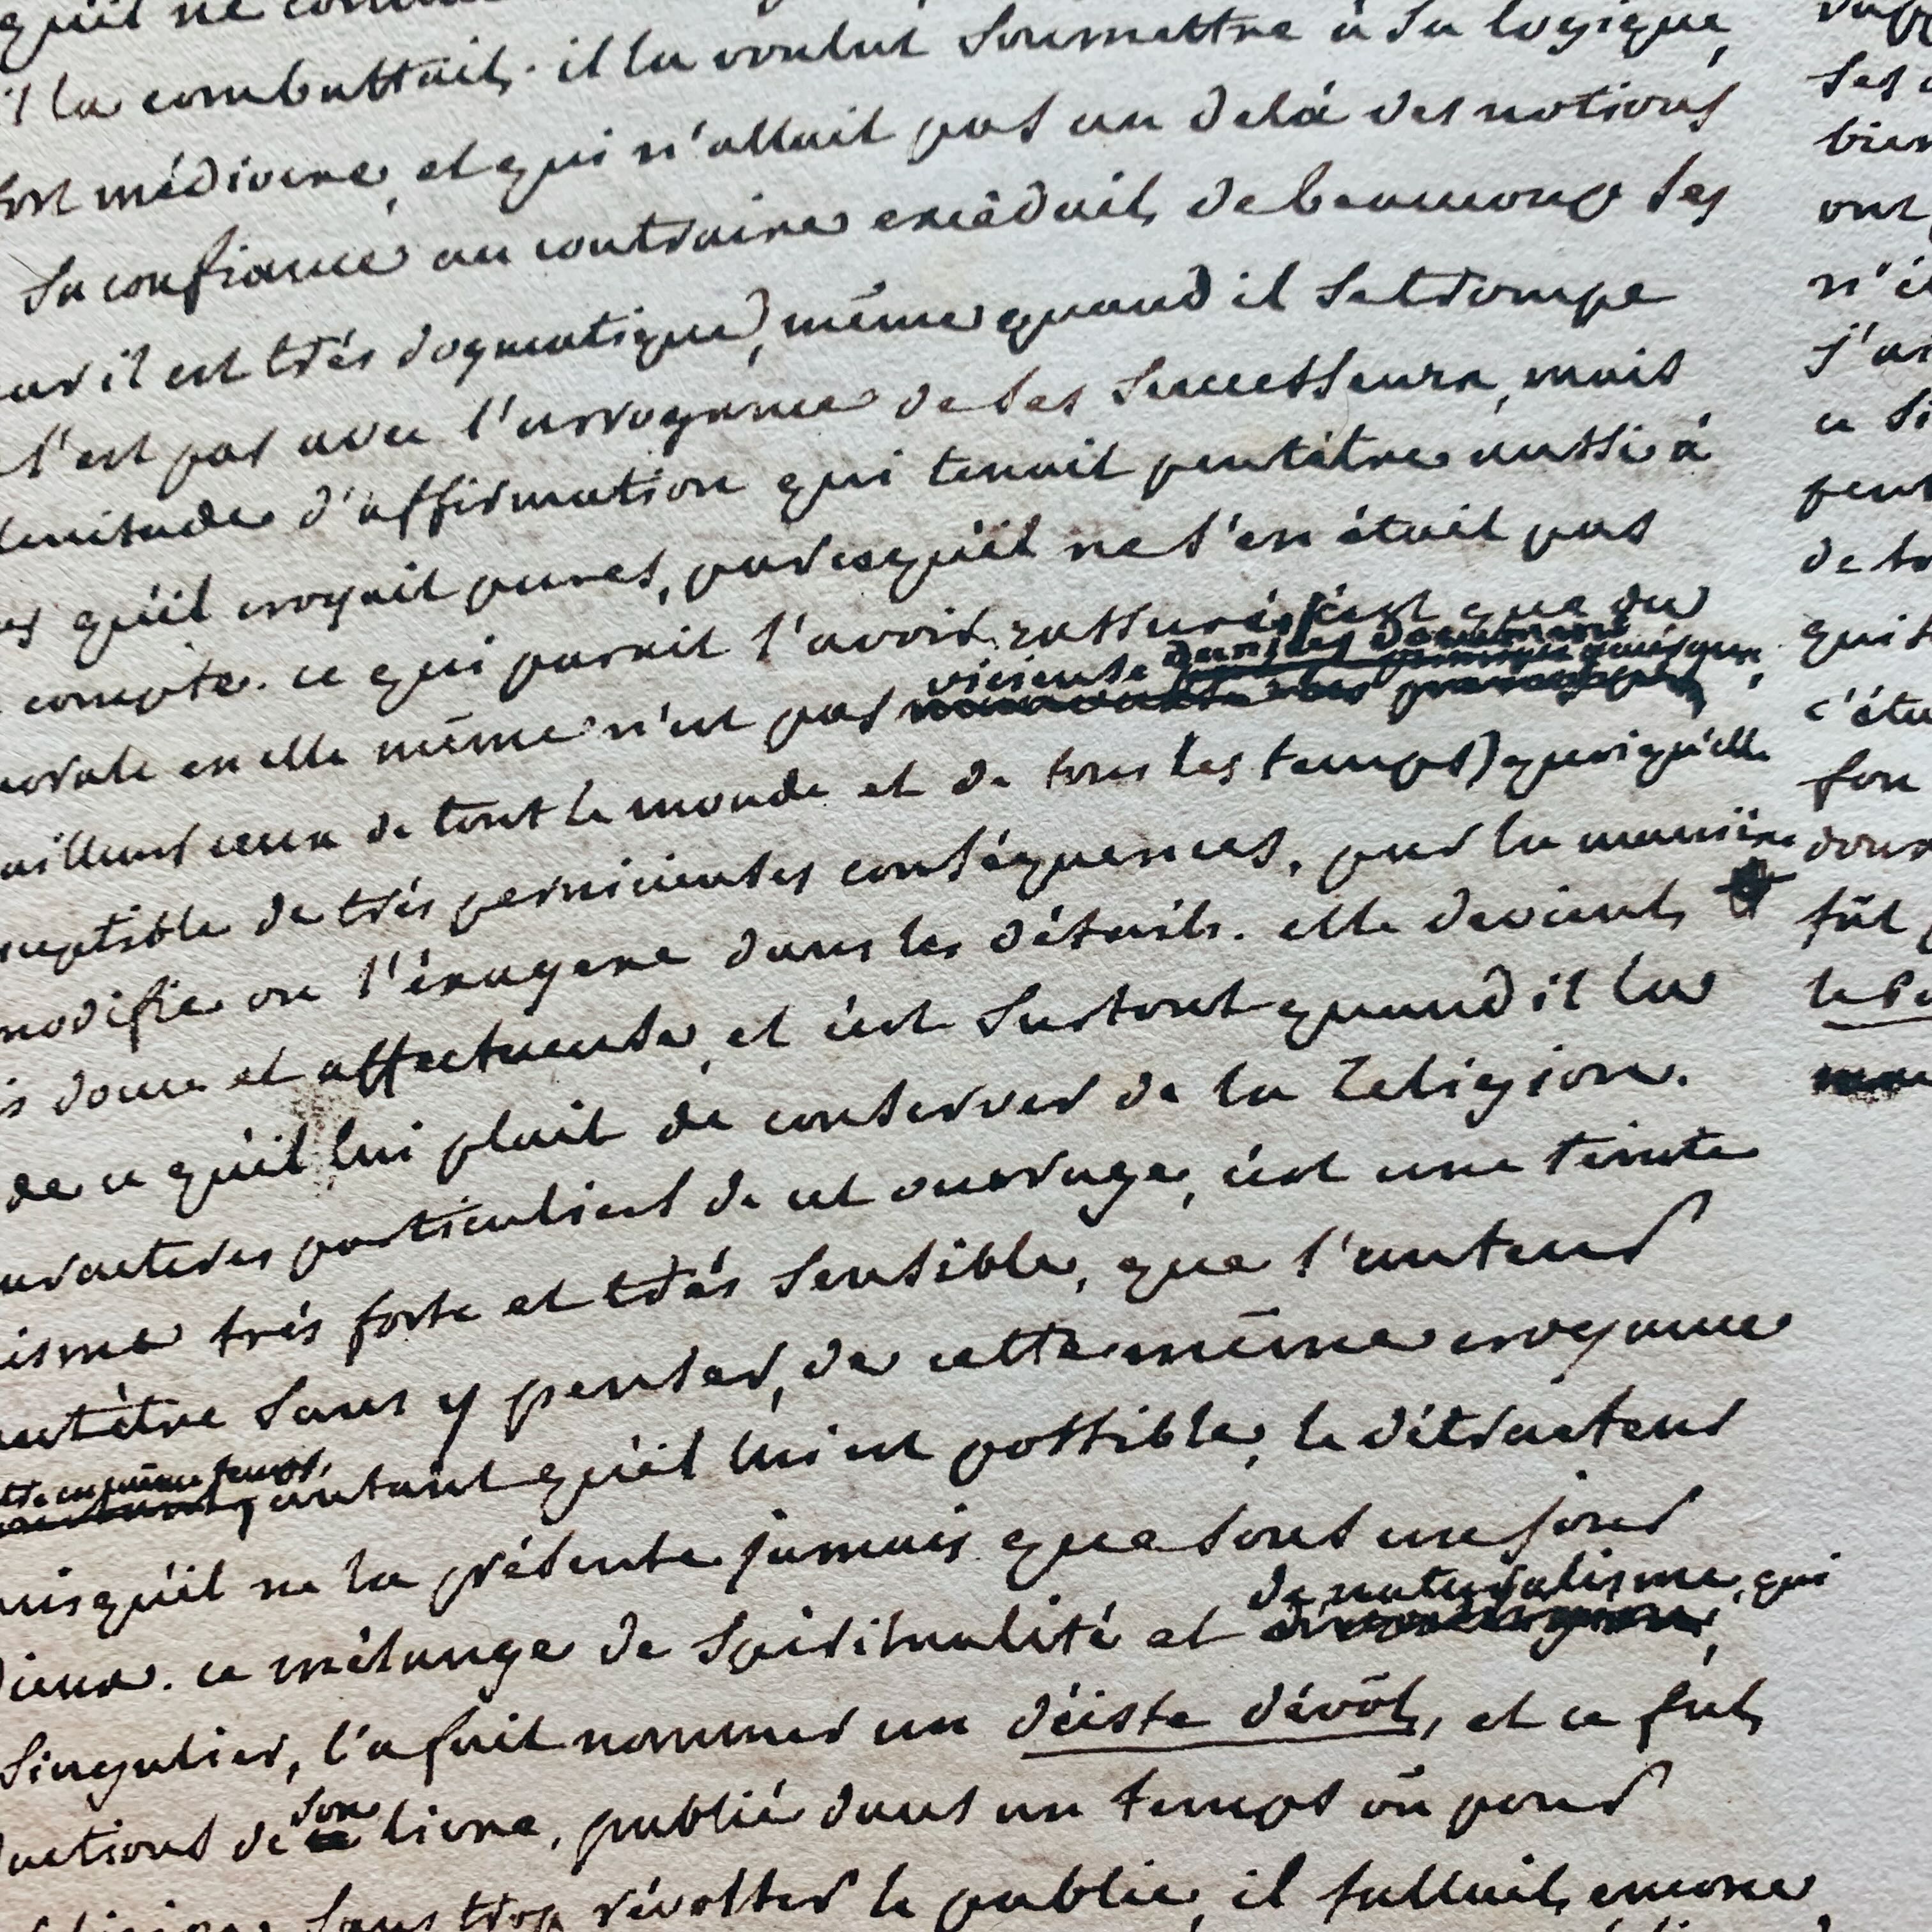 qu'il ne
il la combattait. il la voulut soumettre à sa logique,
fort médiocre, et qui n'allait pas au delà des notions
sa confiance au contraire excédait de beaucoup ses
car il est très dogmatique, même quand il se trompe
n'est pas avec l'arrogance de ses successeurs, mais
plenitude d'affirmation qui tenait peutêtre aussi à
qu'il croyait pures, parcequ'il ne s'en était pas
compte. ce qui parait l'avoir rassuré, c'est que du
vicieuse dans les
morale en elle même n'est pas
ailleurs ceux de tout le monde et de tous les temps) quoiqu'elle
susceptible de très pernicieuses conséquences, par la manière
modifie ou l'exagere dans les détails. elle devient
douce et affectueuse, et c'est surtout quand il la
de ce qu'il lui plait de conserver de la religion.
caracteres particuliers de cet ouvrage, c'est une teinte
isme très forte et très sensible, que l'auteur
peutêtre sans y penser, de cette même croyance
en même temps,
autant qu'il lui est possible, le détracteur
puisqu'il ne la présente jamais que sous un jour
de naturalisme, qui
ce mélange de spiritualité et
singulier, l'a fait nommer un déiste dévôt, et ce fut
son
actions de livre, publié dans un temps où pour
sans trop révolter le public, il fallait encore
ses
bien
ont
n'é
j'a
ce
peu
de
qui
c'éta
fon
fût